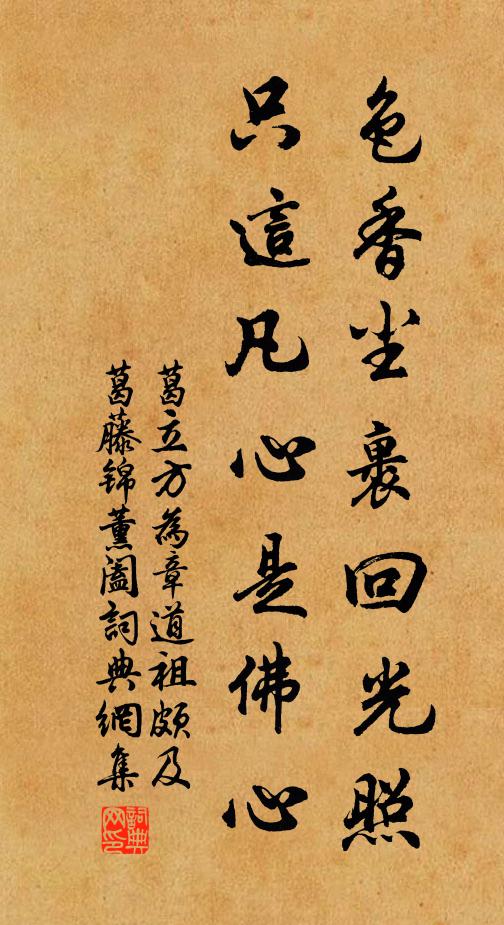 色香尘裹回光照
只這凡心是佛心
葛立方為章道祖頗及
葛藤锦薰阖詞典網集
詞典
网印